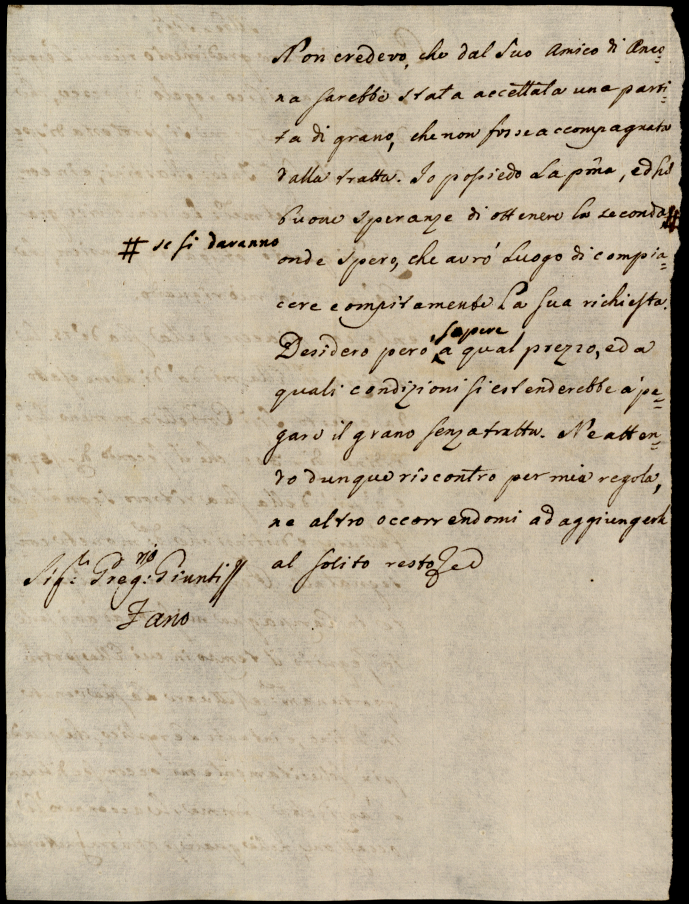 Non credevo, che dal Suo Amico di Anco=
na sarebbe stata accettata una parti=
ta di grano, che non fosse accompagnata
dalla tratta. Io possiedo La pma, ed hò
buone speranze di ottenere la seconda #
# se si daranno
onde spero, che avrò Luogo di compia=
cere compitamente La sua richiesta.
Desidero però sapere a qual prezzo, ed a
quali condizioni si estenderebbe à pa=
gare il grano senza tratta. Ne atten=
do dunque riscontro per mia regola,
ne altro occorrendomi ad aggiungerle
al solito resto
Sig.r Greg.rio Giunti
Fano